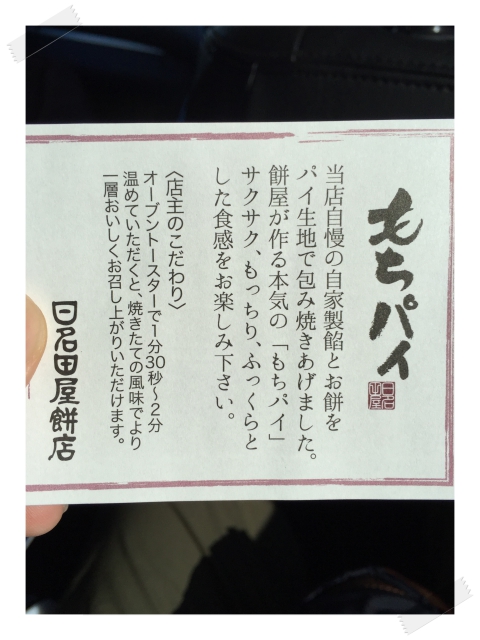 もちパイ
日名田屋
当店自慢の自家製餡とお餅を
パイ生地で包み焼きあげました。
餅屋が作る本気の「もちパイ」
サクサク、もっちり、ふっくらと
した食感をお楽しみ下さい。
〈店主のこだわり〉
オーブントースターで1分30秒〜2分
温めていただくと、焼きたての風味でより
一層おいしくお召し上がりいただけます。
日名田屋餅店